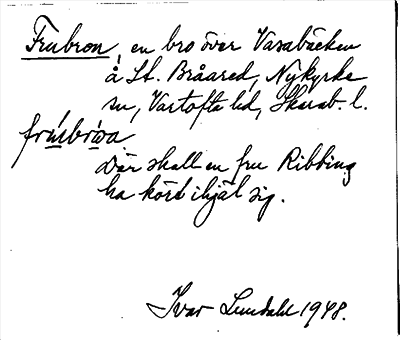 Frubron, en bro över Vasabäcken
å St. Bråared, Nykyrke
sn, Vartofta hd, Skarab. l.
frúsbróa
Där skall en fru Ribbing
ha kört ihjäl sig.
Ivar Lundahl 1948.